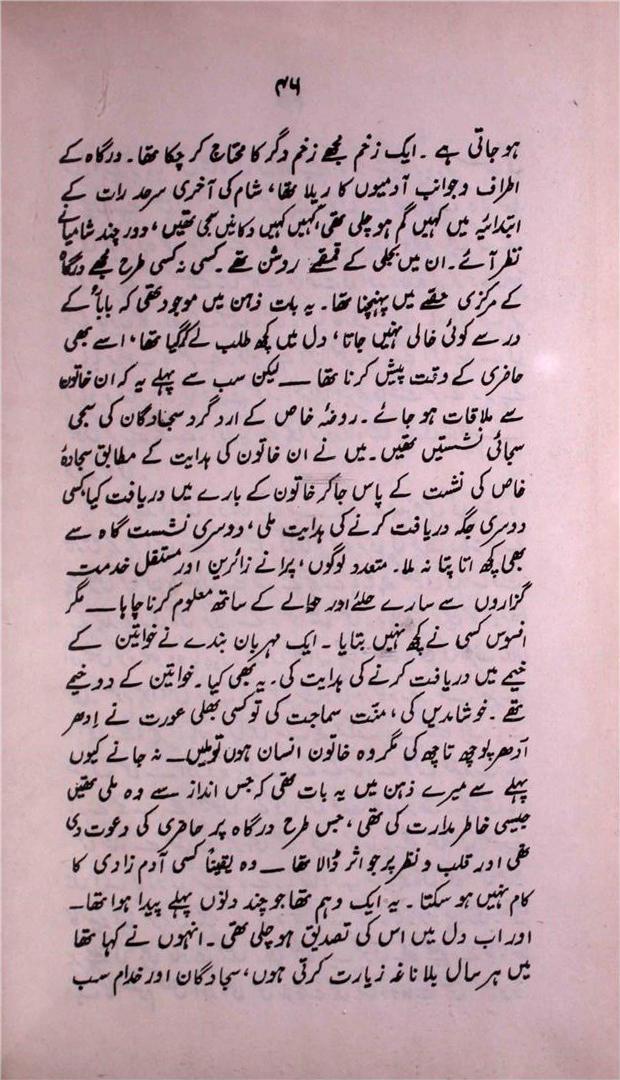 ۴۶
ہو جاتی ہے ۔ ایک زخم مجھے زخم دگر کا محتاج کر چکا تھا ۔ درگاہ کے
اطراف و جوانب آدمیوں کا ریلا تھا ، شام کی آخری سرحد رات کے
ابتدائیہ میں کہیں گم ہو چلی تھی ، کہیں کہیں دکانیں سجی تھیں ، دور چند شامیانے
نظر آئے ۔ ان میں بجلی کے قمقمے روشن تھے ۔ کسی نہ کسی طرح مجھے درگاہ
کے مرکزی حصے میں پہنچنا تھا ۔ یہ بات ذہن میں موجود تھی کہ باباؒ کے
در سے کوئی خالی نہیں جاتا ، دل میں کچھ طلب لے کر گیا تھا ، اسے بھی
حاضری کے وقت پیش کرنا تھا — لیکن سب سے پہلے یہ کہ ان خاتون
سے ملاقات ہو جائے ۔ روضۂ خاص کے ارد گرد سجادگان کی سجی
سجائی نشستیں تھیں ۔ میں نے ان خاتون کی ہدایت کے مطابق سجادۂ
خاص کی نشست کے پاس جا کر خاتون کے بارے میں دریافت کیا ، کسی
دوسری جگہ دریافت کرنے کی ہدایت ملی ، دوسری نشست گاہ سے
بھی کچھ اتا پتا نہ ملا ۔ متعدد لوگوں ، پرانے زائرین اور مستقل خدمت
گزاروں سے سارے حلئے اور حوالے کے ساتھ معلوم کرنا چاہا — مگر
افسوس کسی نے کچھ نہیں بتایا ۔ ایک مہربان بندے نے خواتین کے
خیمے میں دریافت کرنے کی ہدایت کی ۔ یہ بھی کیا ۔ خواتین کے دو خیمے
تھے ۔ خوشامدیں کی ، منّت سماجت کی تو کسی بھلی عورت نے اِدھر
اُدھر پوچھ تاچھ کی مگر وہ خاتون انسان ہوں تو ملیں — نہ جانے کیوں
پہلے سے میرے ذہن میں یہ بات تھی کہ جس انداز سے وہ ملی تھیں
جیسی خاطر مدارت کی تھی ، جس طرح درگاہ پر حاضری کی دعوت دی
تھی اور قلب و نظر پر جو اثر ڈالا تھا — وہ یقیناً کسی آدم زادی کا
کام نہیں ہو سکتا ۔ یہ ایک وہم تھا جو چند دنوں پہلے پیدا ہوا تھا —
اور اب دل میں اس کی تصدیق ہو چلی تھی ۔ انہوں نے کہا تھا
میں ہر سال بلا ناغہ زیارت کرتی ہوں ، سجادگان اور خدام سب